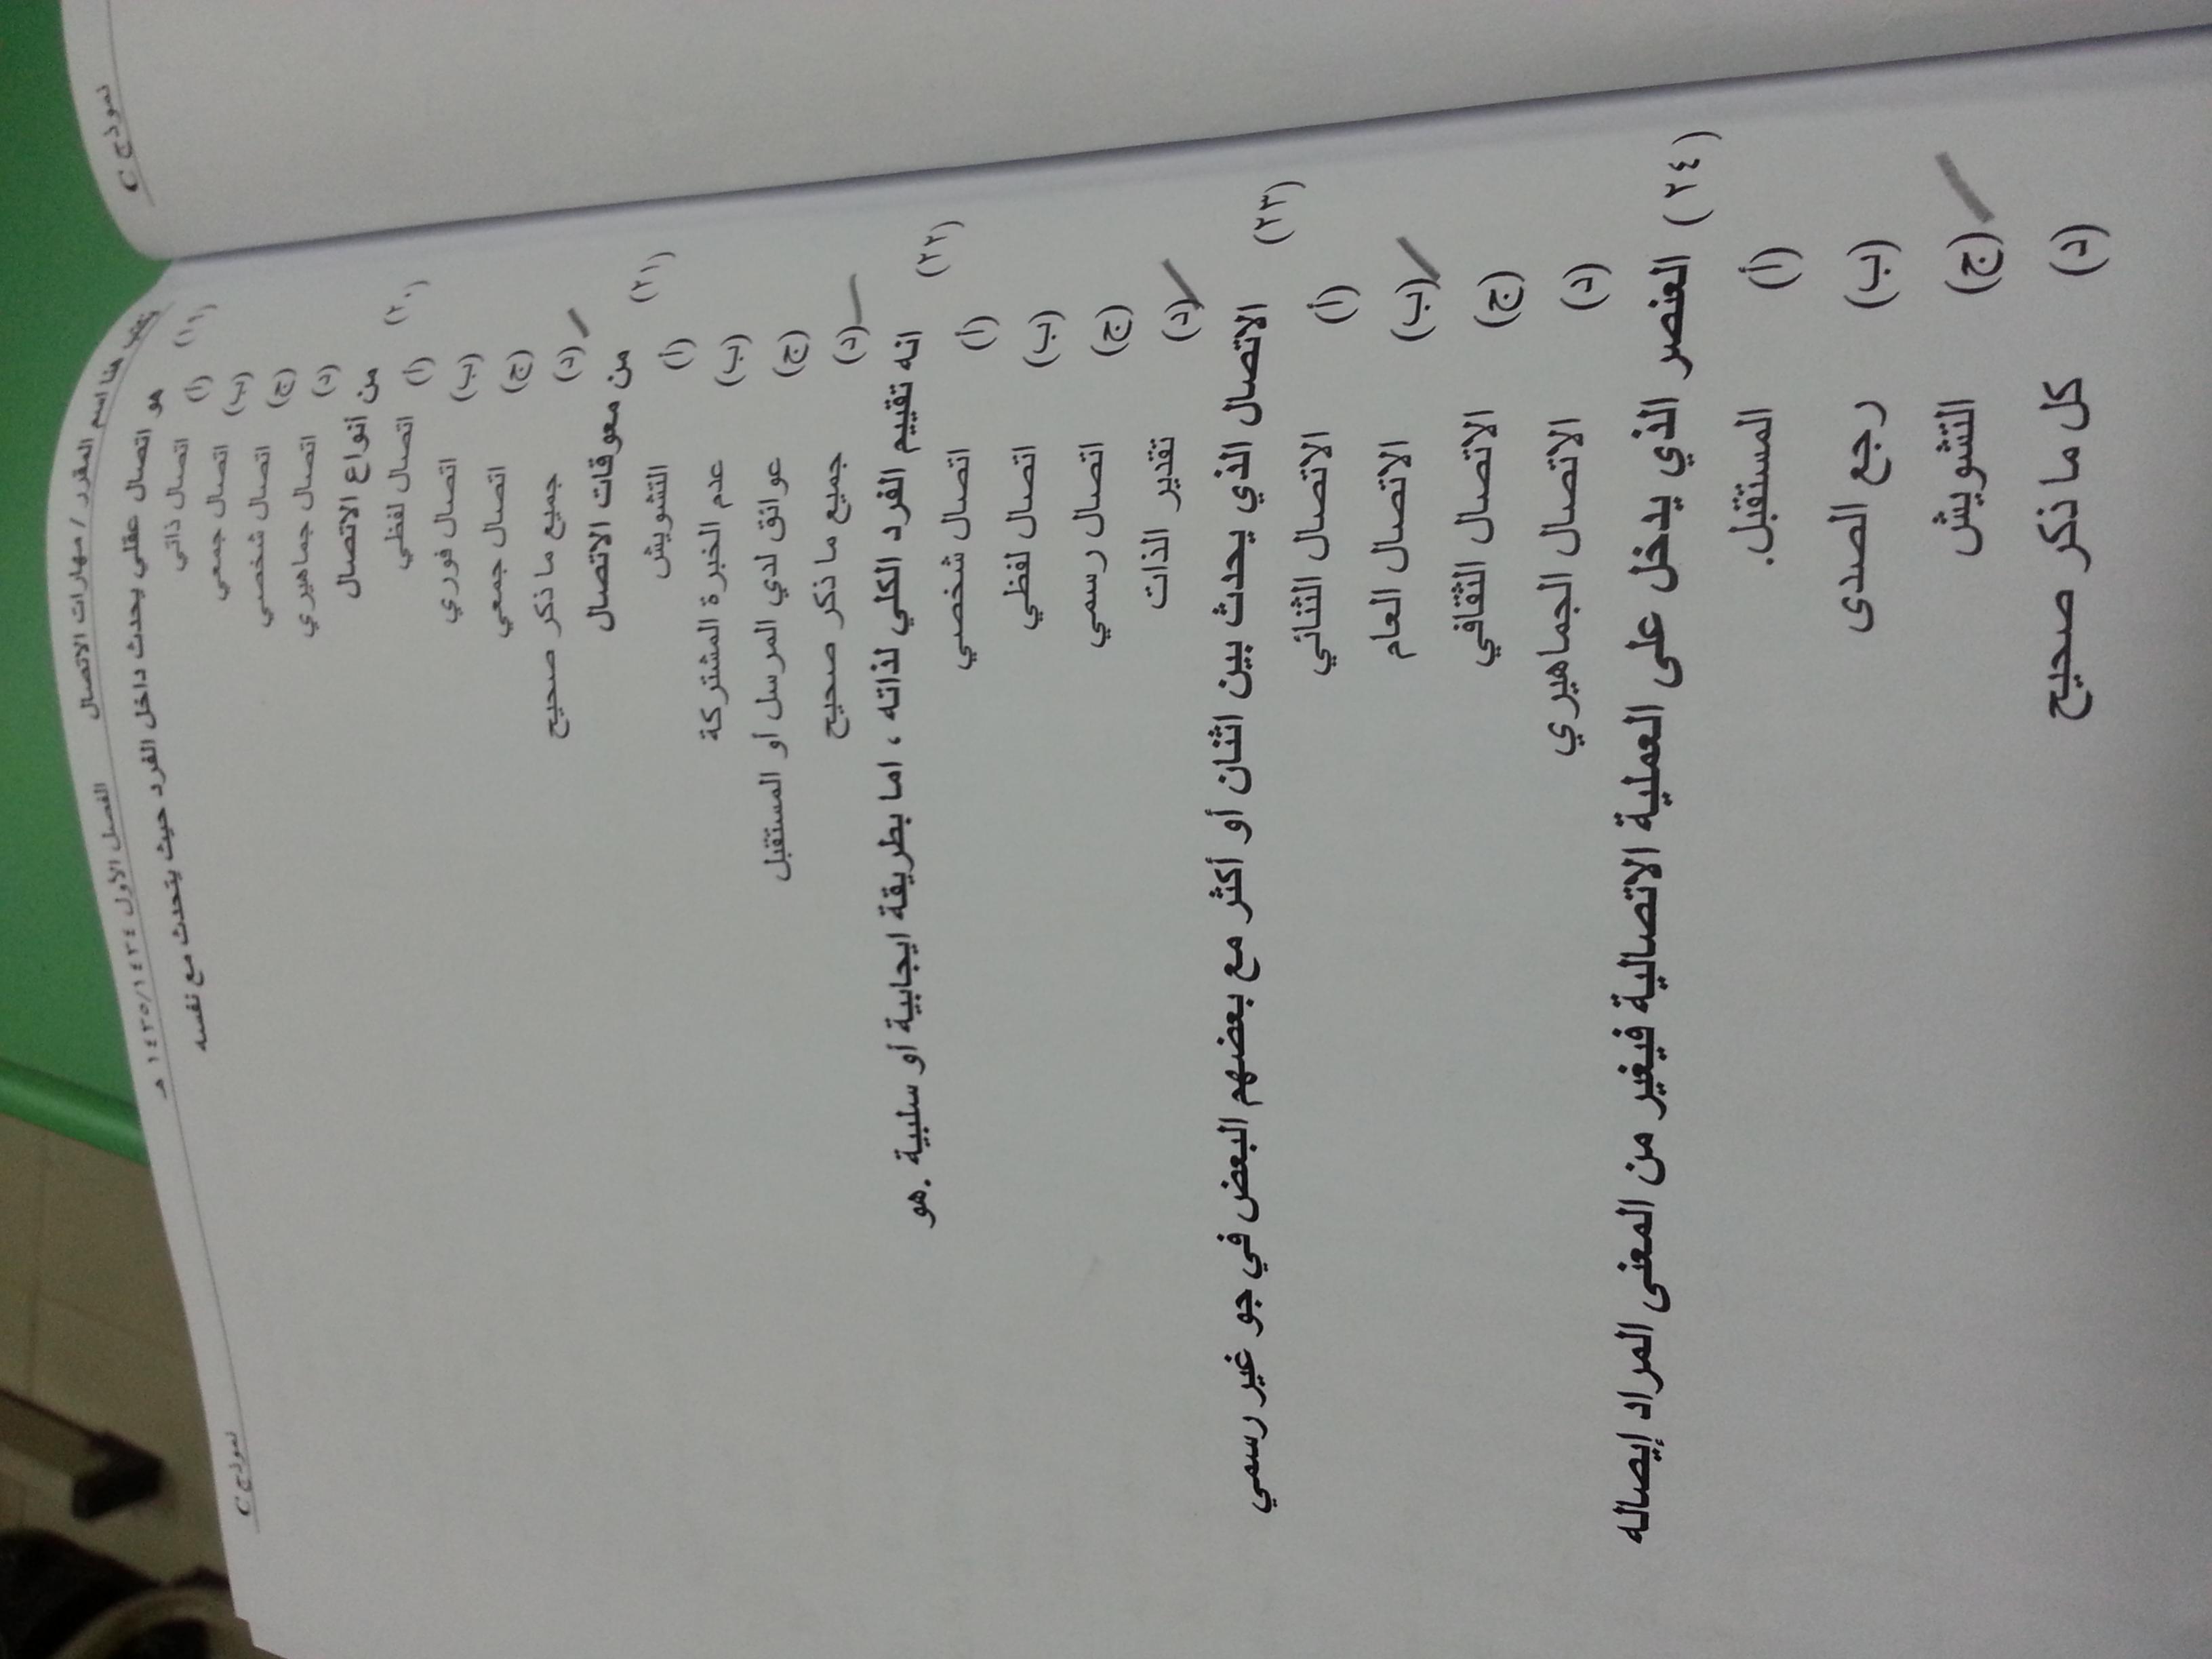 نموذج C
اسم المقرر / مهارات الاتصال
الفصل الأول ١٤٣٥/١٤٣٤ هـ
نموذج C
(١٩) هو اتصال عقلي يحدث داخل الفرد حيث يتحدث مع نفسه
(أ) اتصال ذاتي
(ب) اتصال جمعي
(ج) اتصال شخصي
(د) اتصال جماهيري
(٢٠) من أنواع الاتصال
(أ) اتصال لفظي
(ب) اتصال فوري
(ج) اتصال جمعي
(د) جميع ما ذكر صحيح
(٢١) من معوقات الاتصال
(أ) التشويش
(ب) عدم الخبرة المشتركة
(ج) عوائق لدي المرسل أو المستقبل
(د) جميع ما ذكر صحيح
(٢٢) انه تقييم الفرد الكلي لذاته ، اما بطريقة ايجابية أو سلبية .هو
(أ) اتصال شخصي
(ب) اتصال لفظي
(ج) اتصال رسمي
(د) تقدير الذات
(٢٣) الاتصال الذي يحدث بين اثنان أو أكثر مع بعضهم البعض في جو غير رسمي
(أ) الاتصال الثنائي
(ب) الاتصال العام
(ج) الاتصال الثقافي
(د) الاتصال الجماهيري
(٢٤) العنصر الذي يدخل على العملية الاتصالية فيغير من المعنى المراد إيصاله
(أ) المستقبل.
(ب) رجع الصدى
(ج) التشويش
(د) كل ما ذكر صحيح